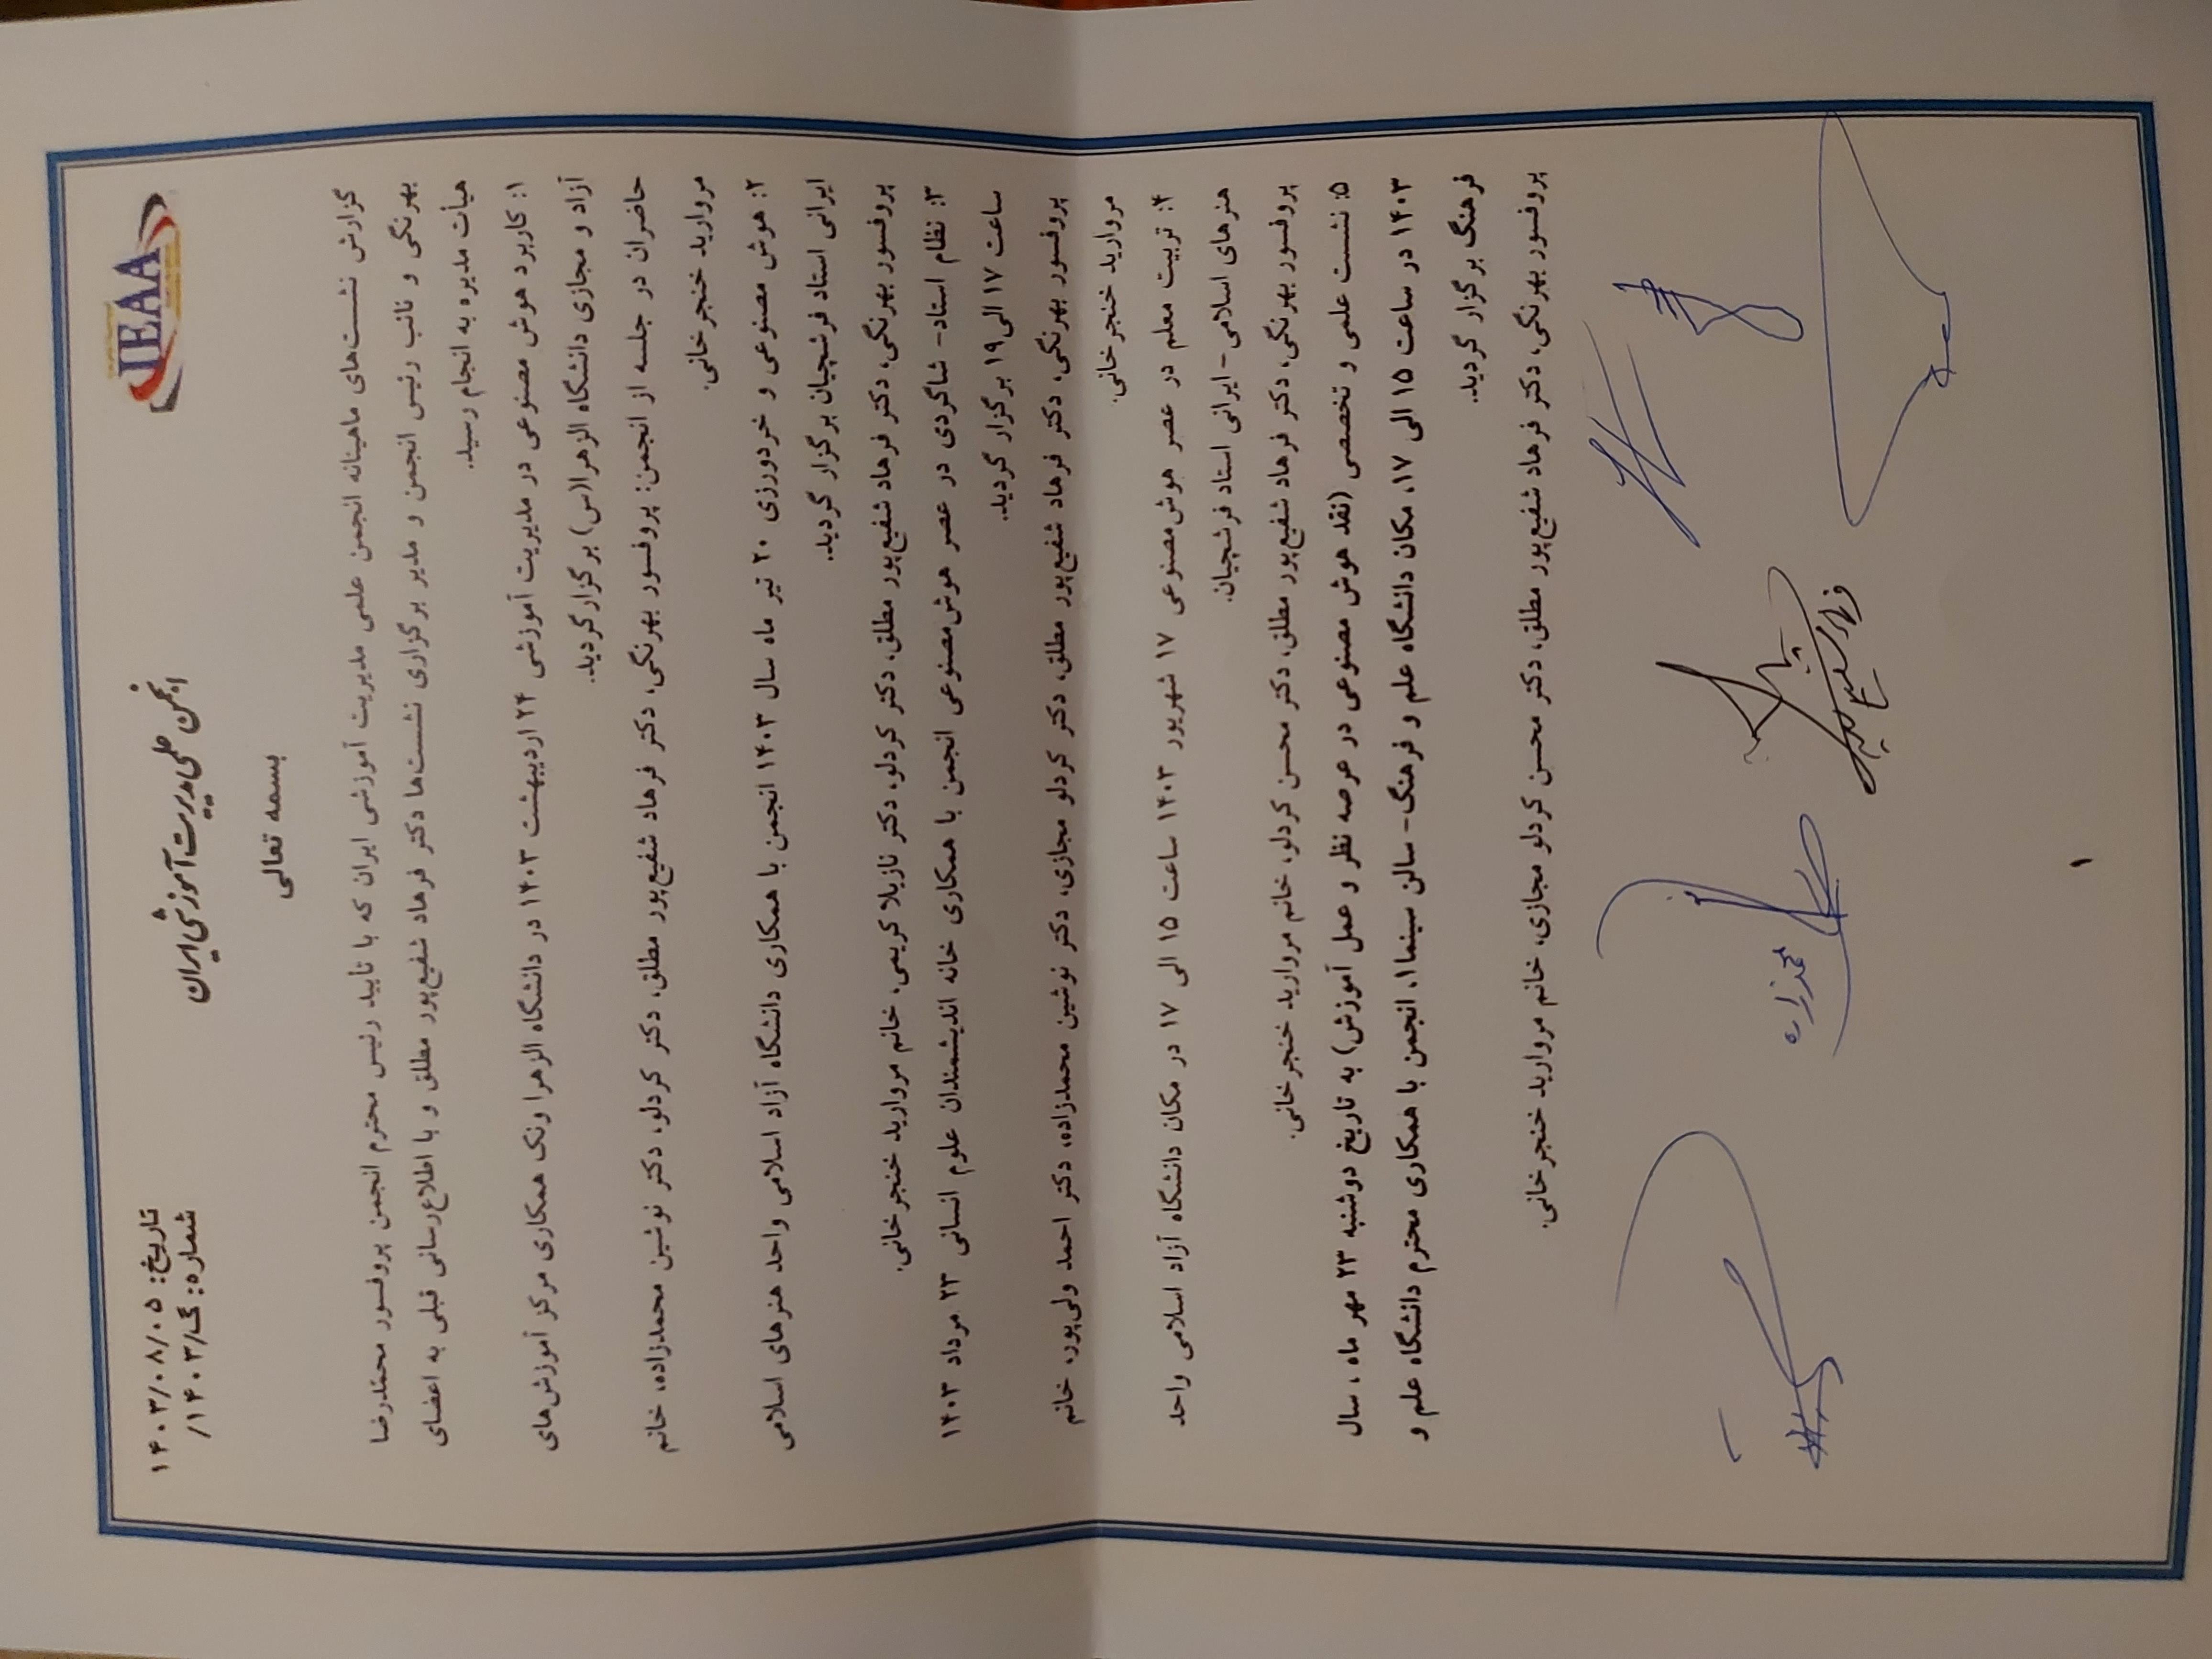 IEAA
انجمن علمی مدیریت آموزشی ایران
تاریخ: ۱۴۰۳/۰۸/۰۵
شماره: گ/۱۴۰۳/
بسمه تعالی
گزارش نشست‌های ماهیانه انجمن علمی مدیریت آموزشی ایران که با تأیید رئیس محترم انجمن پروفسور محمدرضا
بهرنگی و نائب رئیس انجمن و مدیر برگزاری نشست‌ها دکتر فرهاد شفیع‌پور مطلق و با اطلاع‌رسانی قبلی به اعضای
هیأت مدیره به انجام رسید.
۱: کاربرد هوش مصنوعی در مدیریت آموزشی ۲۴ اردیبهشت ۱۴۰۳ در دانشگاه الزهرا ونک همکاری مرکز آموزش‌های
آزاد و مجازی دانشگاه الزهرا(س) برگزار گردید.
حاضران در جلسه از انجمن: پروفسور بهرنگی، دکتر فرهاد شفیع‌پور مطلق، دکتر کردلو، دکتر نوشین محمدزاده، خانم
مروارید خنجرخانی.
۲: هوش مصنوعی و خردورزی ۲۰ تیر ماه سال ۱۴۰۳ انجمن با همکاری دانشگاه آزاد اسلامی واحد هنرهای اسلامی
ایرانی استاد فرشچیان برگزار گردید.
پروفسور بهرنگی، دکتر فرهاد شفیع‌پور مطلق، دکتر کردلو، دکتر نازیلا کریمی، خانم مروارید خنجرخانی.
۳: نظام استاد- شاگردی در عصر هوش‌مصنوعی انجمن با همکاری خانه اندیشمندان علوم انسانی ۲۳ مرداد ۱۴۰۳
ساعت ۱۷ الی۱۹ برگزار گردید.
پروفسور بهرنگی، دکتر فرهاد شفیع‌پور مطلق، دکتر کردلو مجازی، دکتر نوشین محمدزاده، دکتر احمد ولی‌پور، خانم
مروارید خنجرخانی.
۴: تربیت معلم در عصر هوش‌مصنوعی ۱۷ شهریور ۱۴۰۳ ساعت ۱۵ الی ۱۷ در مکان دانشگاه آزاد اسلامی واحد
هنرهای اسلامی-ایرانی استاد فرشچیان.
پروفسور بهرنگی، دکتر فرهاد شفیع‌پور مطلق، دکتر محسن کردلو، خانم مروارید خنجرخانی.
۵: نشست علمی و تخصصی (نقد هوش مصنوعی در عرصه نظر و عمل آموزش) به تاریخ دوشنبه ۲۳ مهر ماه ، سال
۱۴۰۳ در ساعت ۱۵ الی ۱۷، مکان دانشگاه علم و فرهنگ- سالن سینما۱، انجمن با همکاری محترم دانشگاه علم و
فرهنگ برگزار گردید.
پروفسور بهرنگی، دکتر فرهاد شفیع‌پور مطلق، دکتر محسن کردلو مجازی، خانم مروارید خنجرخانی.
محمدزاده
۱